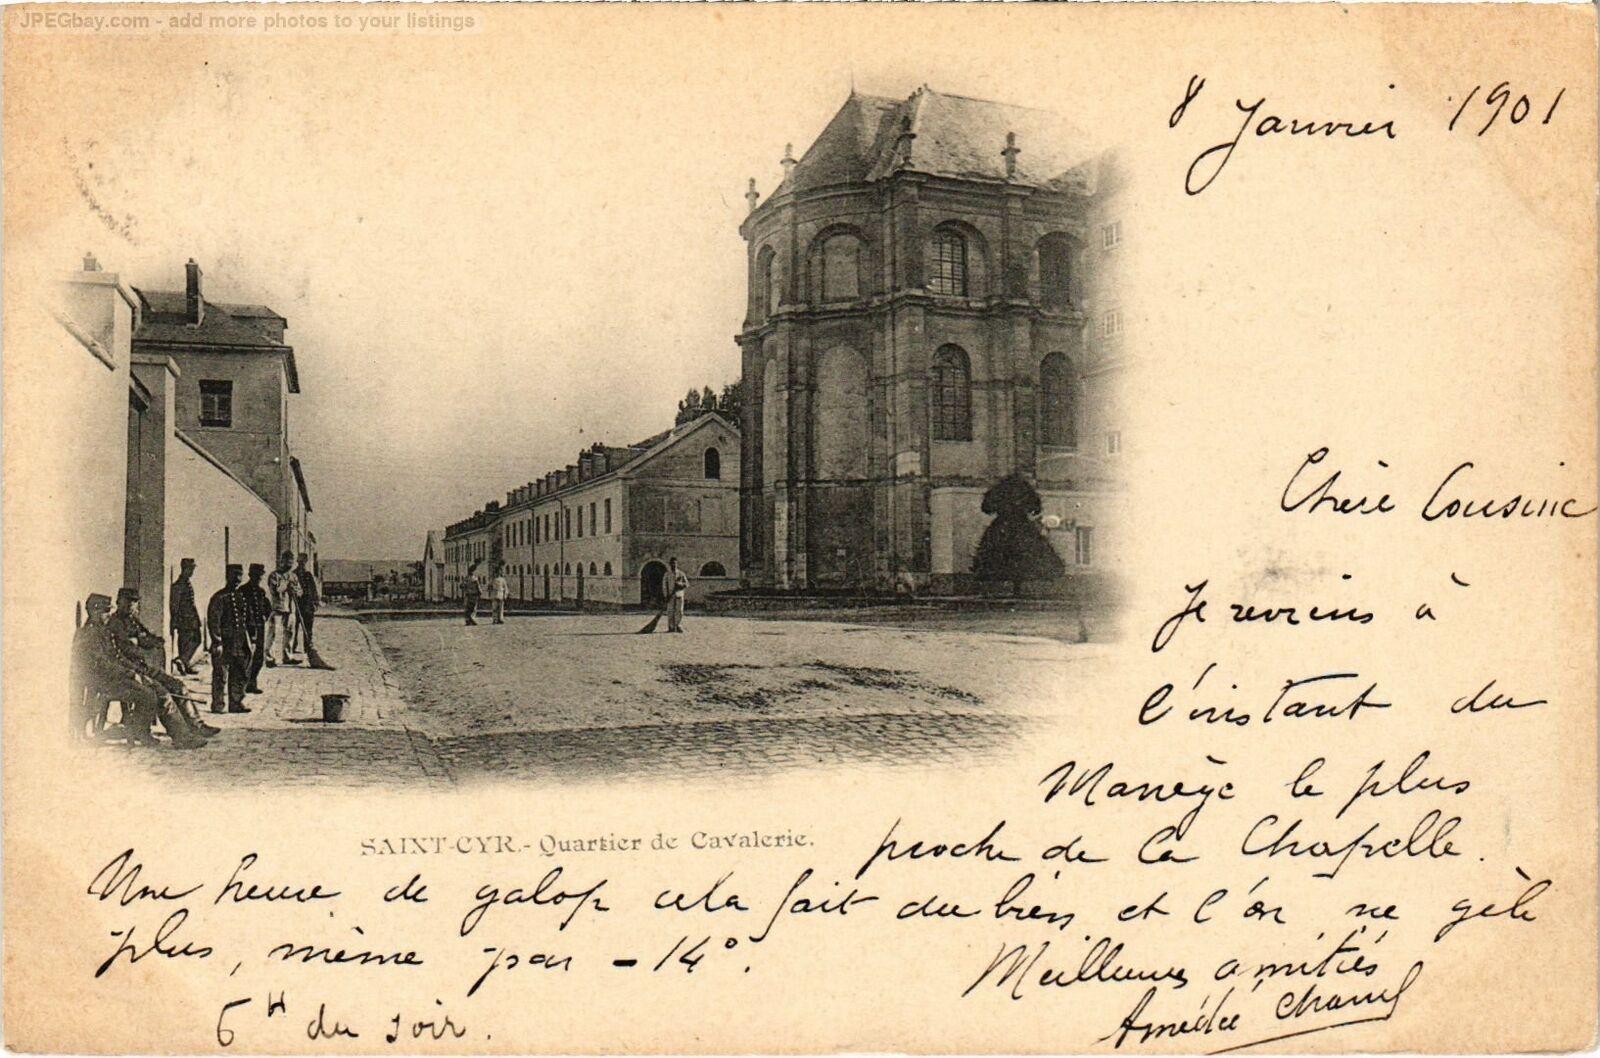 JPEGbay.com - add more photos to your listings
8 Janvier 1901
Chère Cousine
Je reviens à
l'instant du
Manège le plus
proche de la Chapelle.
SAINT-CYR.- Quartier de Cavalerie.
Une heure de galop cela fait du bien et l'on ne gèle
plus, même par -14°.
Meilleures amitiés
Amédée
6H du soir.